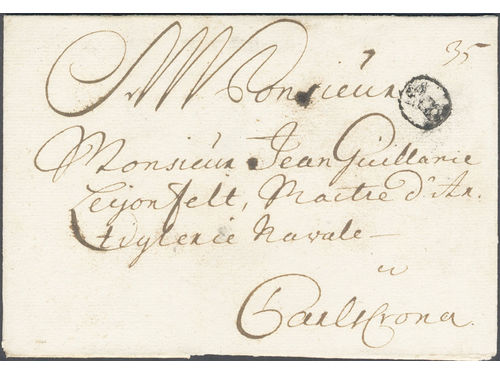 7
35
Monsieur
Monsieur Jean Guillaùme
Leijonfelt, Maitre d'Ar-
tyglerie Navale —
a
Carlscrona.